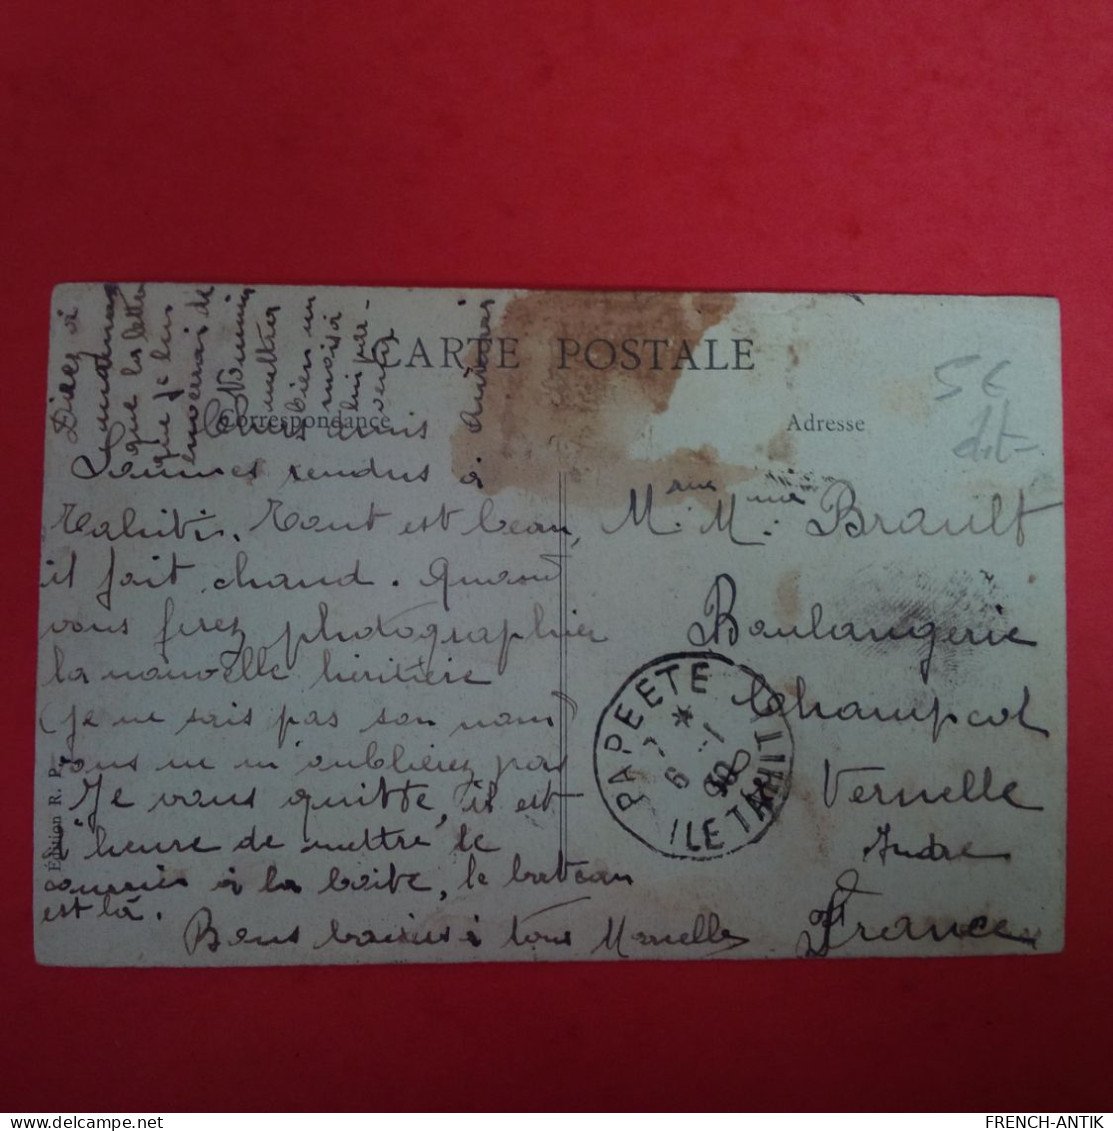 CARTE POSTALE
Correspondance
Adresse
5 €
Dites à
que la lettre
que je lui
enverrais de
mettra
bien un
mois à
lui par-
venir
Chers amis
Sommes rendus à
Tahiti. Tout est beau,
il fait chaud. Quand
vous ferez photographier
la nouvelle héritière
(je ne sais pas son nom)
vous ne m'oublierez pas
Je vous quitte, il est
l'heure de mettre le
courrier à la boite, le bateau
est là.
Bons baisers à tous Marcelle
M. Mme Brault
Boulangerie
Champcol
Vernelle
Indre
France
PAPEETE
ILE TAHITI
6 -1
30
Edition R. P.
FRENCH-ANTIK